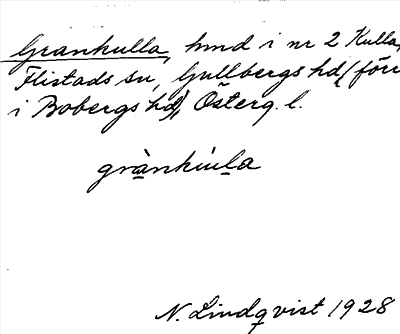 Grankulla, hmd i nr 2 Kulla,
Flistads sn, Gullbergs hd (förr
i Bobergs hd), Österg. l.
grànkùla
N. Lindqvist 1928